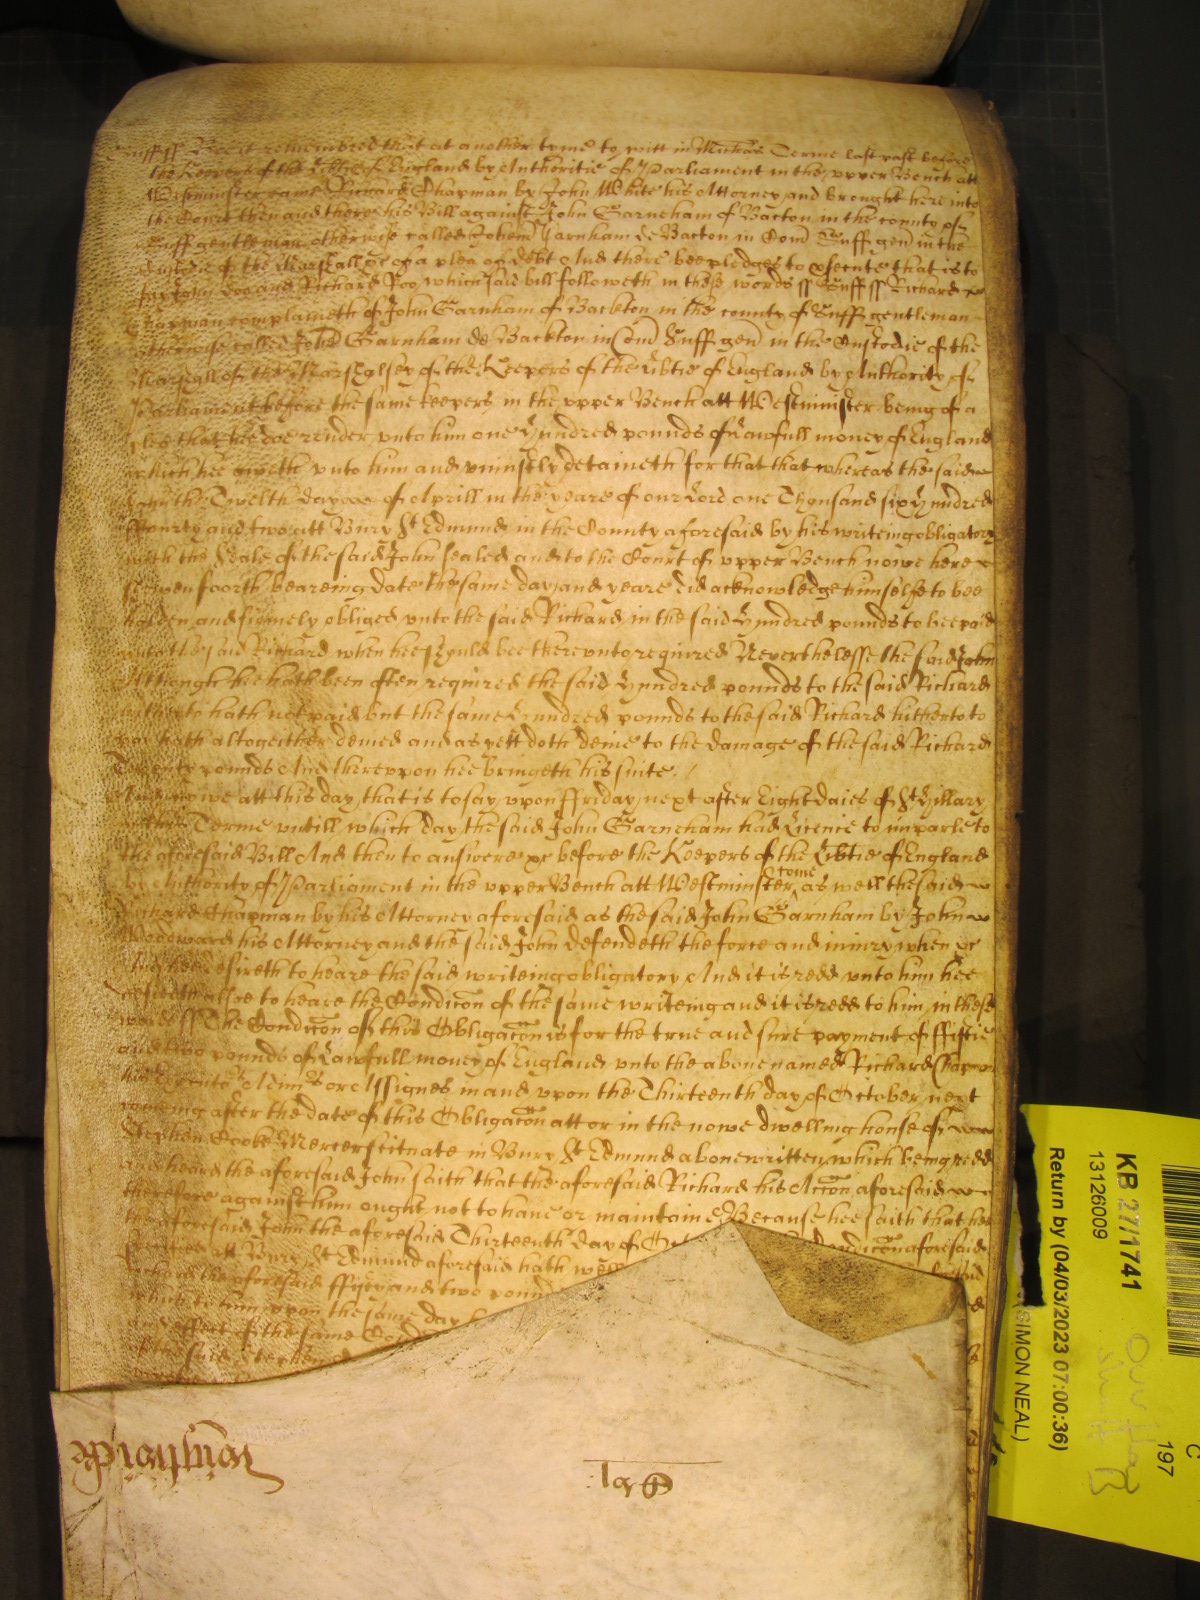 Suff ss Bee it remembred that at another tyme to witt in Michas Terme last past before
the Keepers of the Libtie of England by Authoritie of Parliament in the upper Bench att
Westminster came Richard Chapman by John White his Attorney and brought here into
the Court then and there his Bill against John Garneham of Bacton in the county of
Suff gentleman otherwise called Johem Garnham de Bacton in Com Suff gen in the
Custodie of the Marshall &c of a plea of debt And there bee pledges to prsecute that is to
say John Doo and Richard Roo, which said bill followeth in these words ss Suff ss Richard
Chapman complaineth of John Garnham of Backton in the county of Suff gentleman
otherwise called John Garnham de Backton in Com Suff gen in the Custodie of the
Marshall of the Marshalsey of the Keepers of the Libtie of England by Authority of
Parliament before the same keepers in the upper Bench att Westminster being of a
plea that hee doe render unto him one Hundred pounds of Lawfull money of England
which hee oweth unto him and uniustly detaineth for that that whereas the said
John the Twelth day of Aprill in the yeare of our Lord one Thousand six Hundred
ffourty and two att Bury St Edmund in the County aforesaid by his writeing obligatory
with the Seale of the said John sealed and to the Court of upper Bench nowe here
shewen foorth beareing date the same day and yeare did acknowledge himselfe to bee
holden and firmely obliged unto the said Richard in the said Hundred pounds to bee paid
unto the said Richard when hee should bee thereunto required Neverthelesse the said John
Although hee hath been often required the said Hundred pounds to the said Richard
hitherto hath not paid but the same Hundred pounds to the said Richard hitherto to
pay hath altogeither denied and as yett doth denie to the damage of the said Richard
Twenty pounds And thereuppon hee bringeth his suite /
And nowe att this day, that is to say, upon ffriday next after Eight daies of St Hillary
Terme untill which day the said John Garneham had Licence to imparle to
the aforesaid Bill And then to answere &c before the Keepers of the Libtie of England
by Authority of Parliament in the upper Bench att Westminster come as well the said
Richard Chapman by his Attorney aforesaid as the said John Garnham by John
Woodward his Attorney and the said John defendeth the force and iniury when &c
And hee desireth to heare the said writeing obligatory And it is redd unto him hee
desireth alsoe to heare the Condicon of the same writeing and it is redd to him in these
words ss The Condicon of this Obligacon is for the true and sure payment of ffiftie
and two pounds of Lawfull money of England unto the above named Richard Chapman
his Executors Admrs or Assignes in and upon the Thirteenth day of October next
comeing after the date of this Obligacon att or in the nowe dwelling house of
Stephen Cooke Mercer scituate in Bury St Edmund abovewritten, which being redd
and heard the aforesaid John saith that the aforesaid Richard his Accon aforesaid
therefore against him ought not to have or maintaine Because hee saith that hee
the aforesaid John the aforesaid Thirteenth day of Condicon aforesaid
att Bury St Edmund aforesaid hath
Richard the aforesaid ffifty and two pounds
which to him upon the same day
and effect of the same
the said Stephen
KB 27/1741
13126009
Return by (04/03/2023 07:00:36)
(SIMON NEAL)
C
197